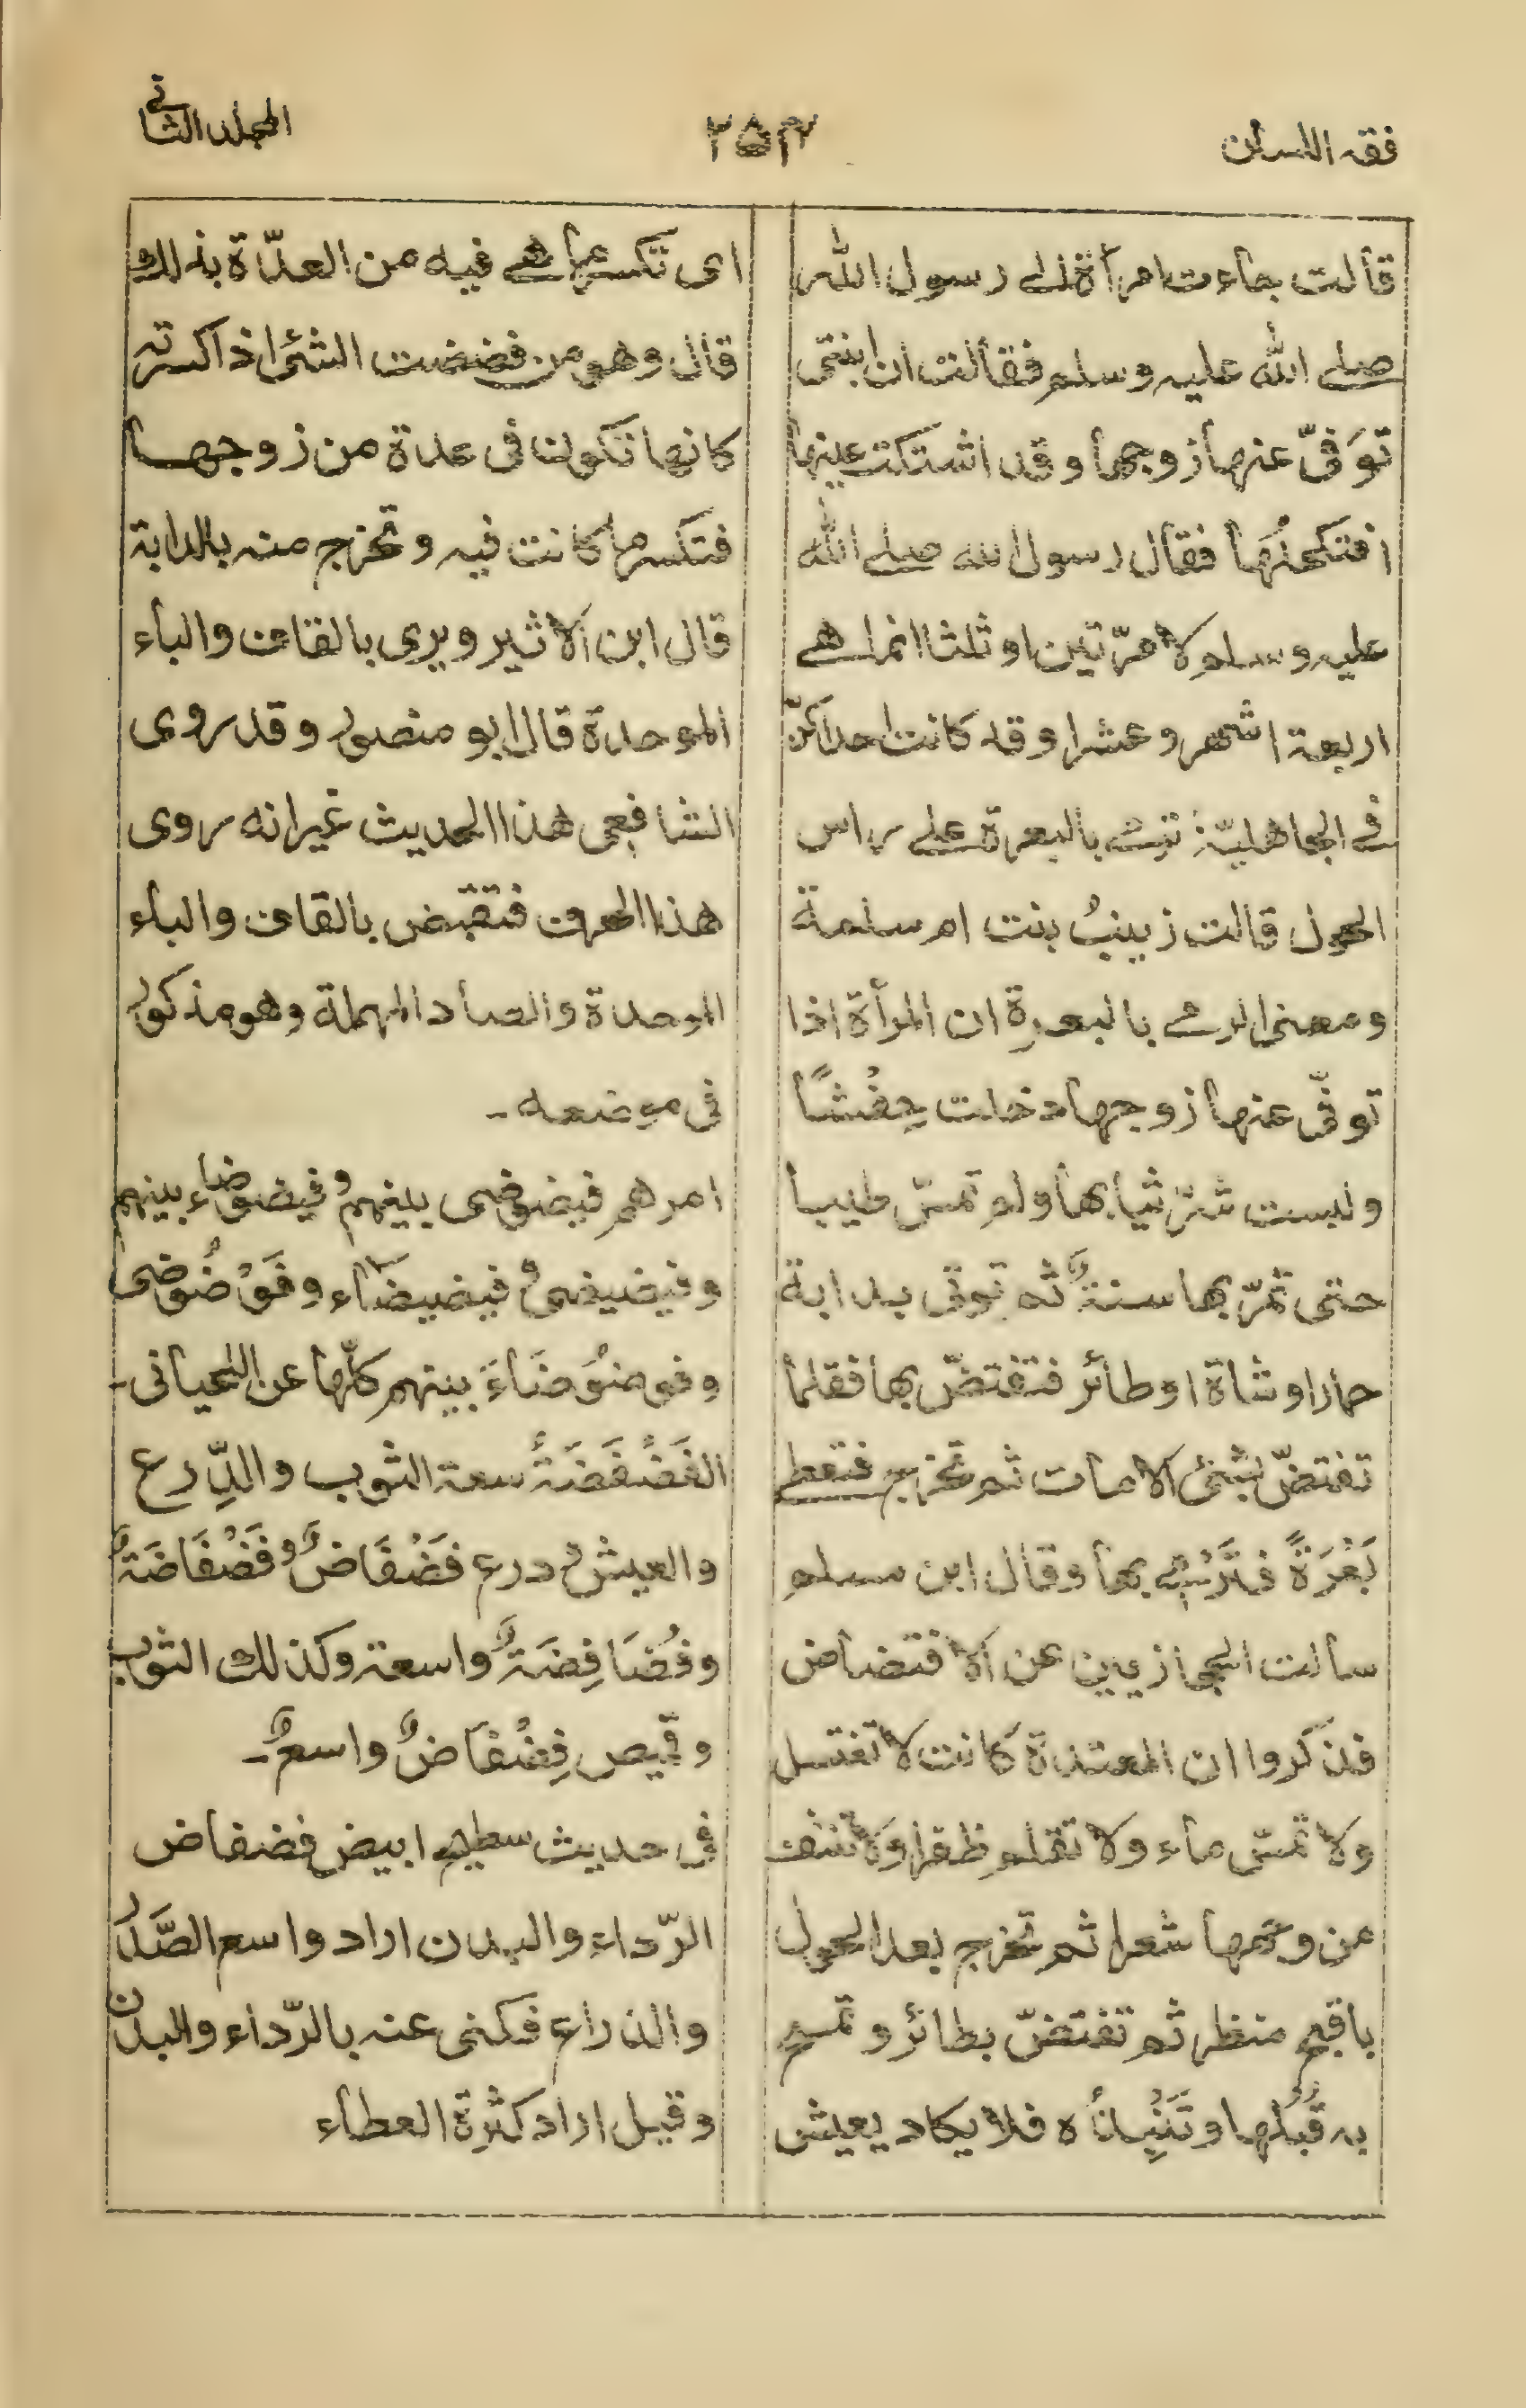 فقه اللسان
٢٥٤
المجلد الثاني
قالت جاءت امرأة الى رسول الله
صلى الله عليه وسلم فقالت ان ابنتى
توَفّى عنها زوجها وقد اشتكت عينها
افتكحلُها فقال رسول الله صلى الله
عليه وسلم لا مرّتين او ثلثا انما هى
اربعة اشهر وعشرا وقد كانت احداكنّ
فى الجاهليّة ترمى بالبعرة على راس
الحول قالت زينبُ بنت ام سلمة
ومعنى الرمى بالبعرة ان المرأة اذا
توفّى عنها زوجها دخلت حِفْشًا
ولبست شرّ ثيابها ولم تمسّ طيبا
حتى تمرّ بها سنةٌ ثم توتى بدابة
حمار او شاة او طائر فتفتضّ بها فقلما
تفتضّ بشئ الا مات ثم تخرج فتعطى
بَعْرَةً فتَرْمى بها وقال ابن مسلم
سالت الحجازيين عن الافتضاض
فذكروا ان المعتدة كانت لا تغتسل
ولا تمسّ ماء ولا تقلم ظفرا ولا تنتف
من وجهها شعرا ثم تخرج بعد الحول
باقبح منظر ثم تفتضّ بطائر وتمسح
به قُبُلَها وتَنْبِذُه فلا يكاد يعيش
اى تكسر ما هى فيه من العدّة بذلك
قال وهو من فضضت الشئ اذا كسرته
كانها تكون فى عدة من زوجها
فتكسر ما كانت فيه وتخرج منه بالدابة
قال ابن الاثير ويروى بالقاف والباء
الموحدة قال ابو منصور وقد روى
الشافعى هذا الحديث غير انه روى
هذا الحرف فتقبض بالقاف والباء
الموحدة والصاد المهملة وهو مذكور
فى موضعه ـ
امرهم فيضوضى بينهم وفيضوضاء بينهم
وفيضيضى وفيضيضاء وفَوْضُوضى
وفوضوُضَاءَ بينهم كلّها عن اللحيانى ـ
الفَضْفَضَةُ سعة الثوب والدِّرع
والعيش ودرع فَضْفَاضٌ وفَضْفَاضَةٌ
وفُضَافِضَةٌ واسعة وكذلك الثوب
وقميص فِضْفَاضٌ واسعٌ ـ
فى حديث سطيح ابيض فضفاض
الرّداء والبدن اراد واسع الصَّدر
والذراع فكنى عنه بالرّداء والبدن
وقيل اراد كثرة العطاء